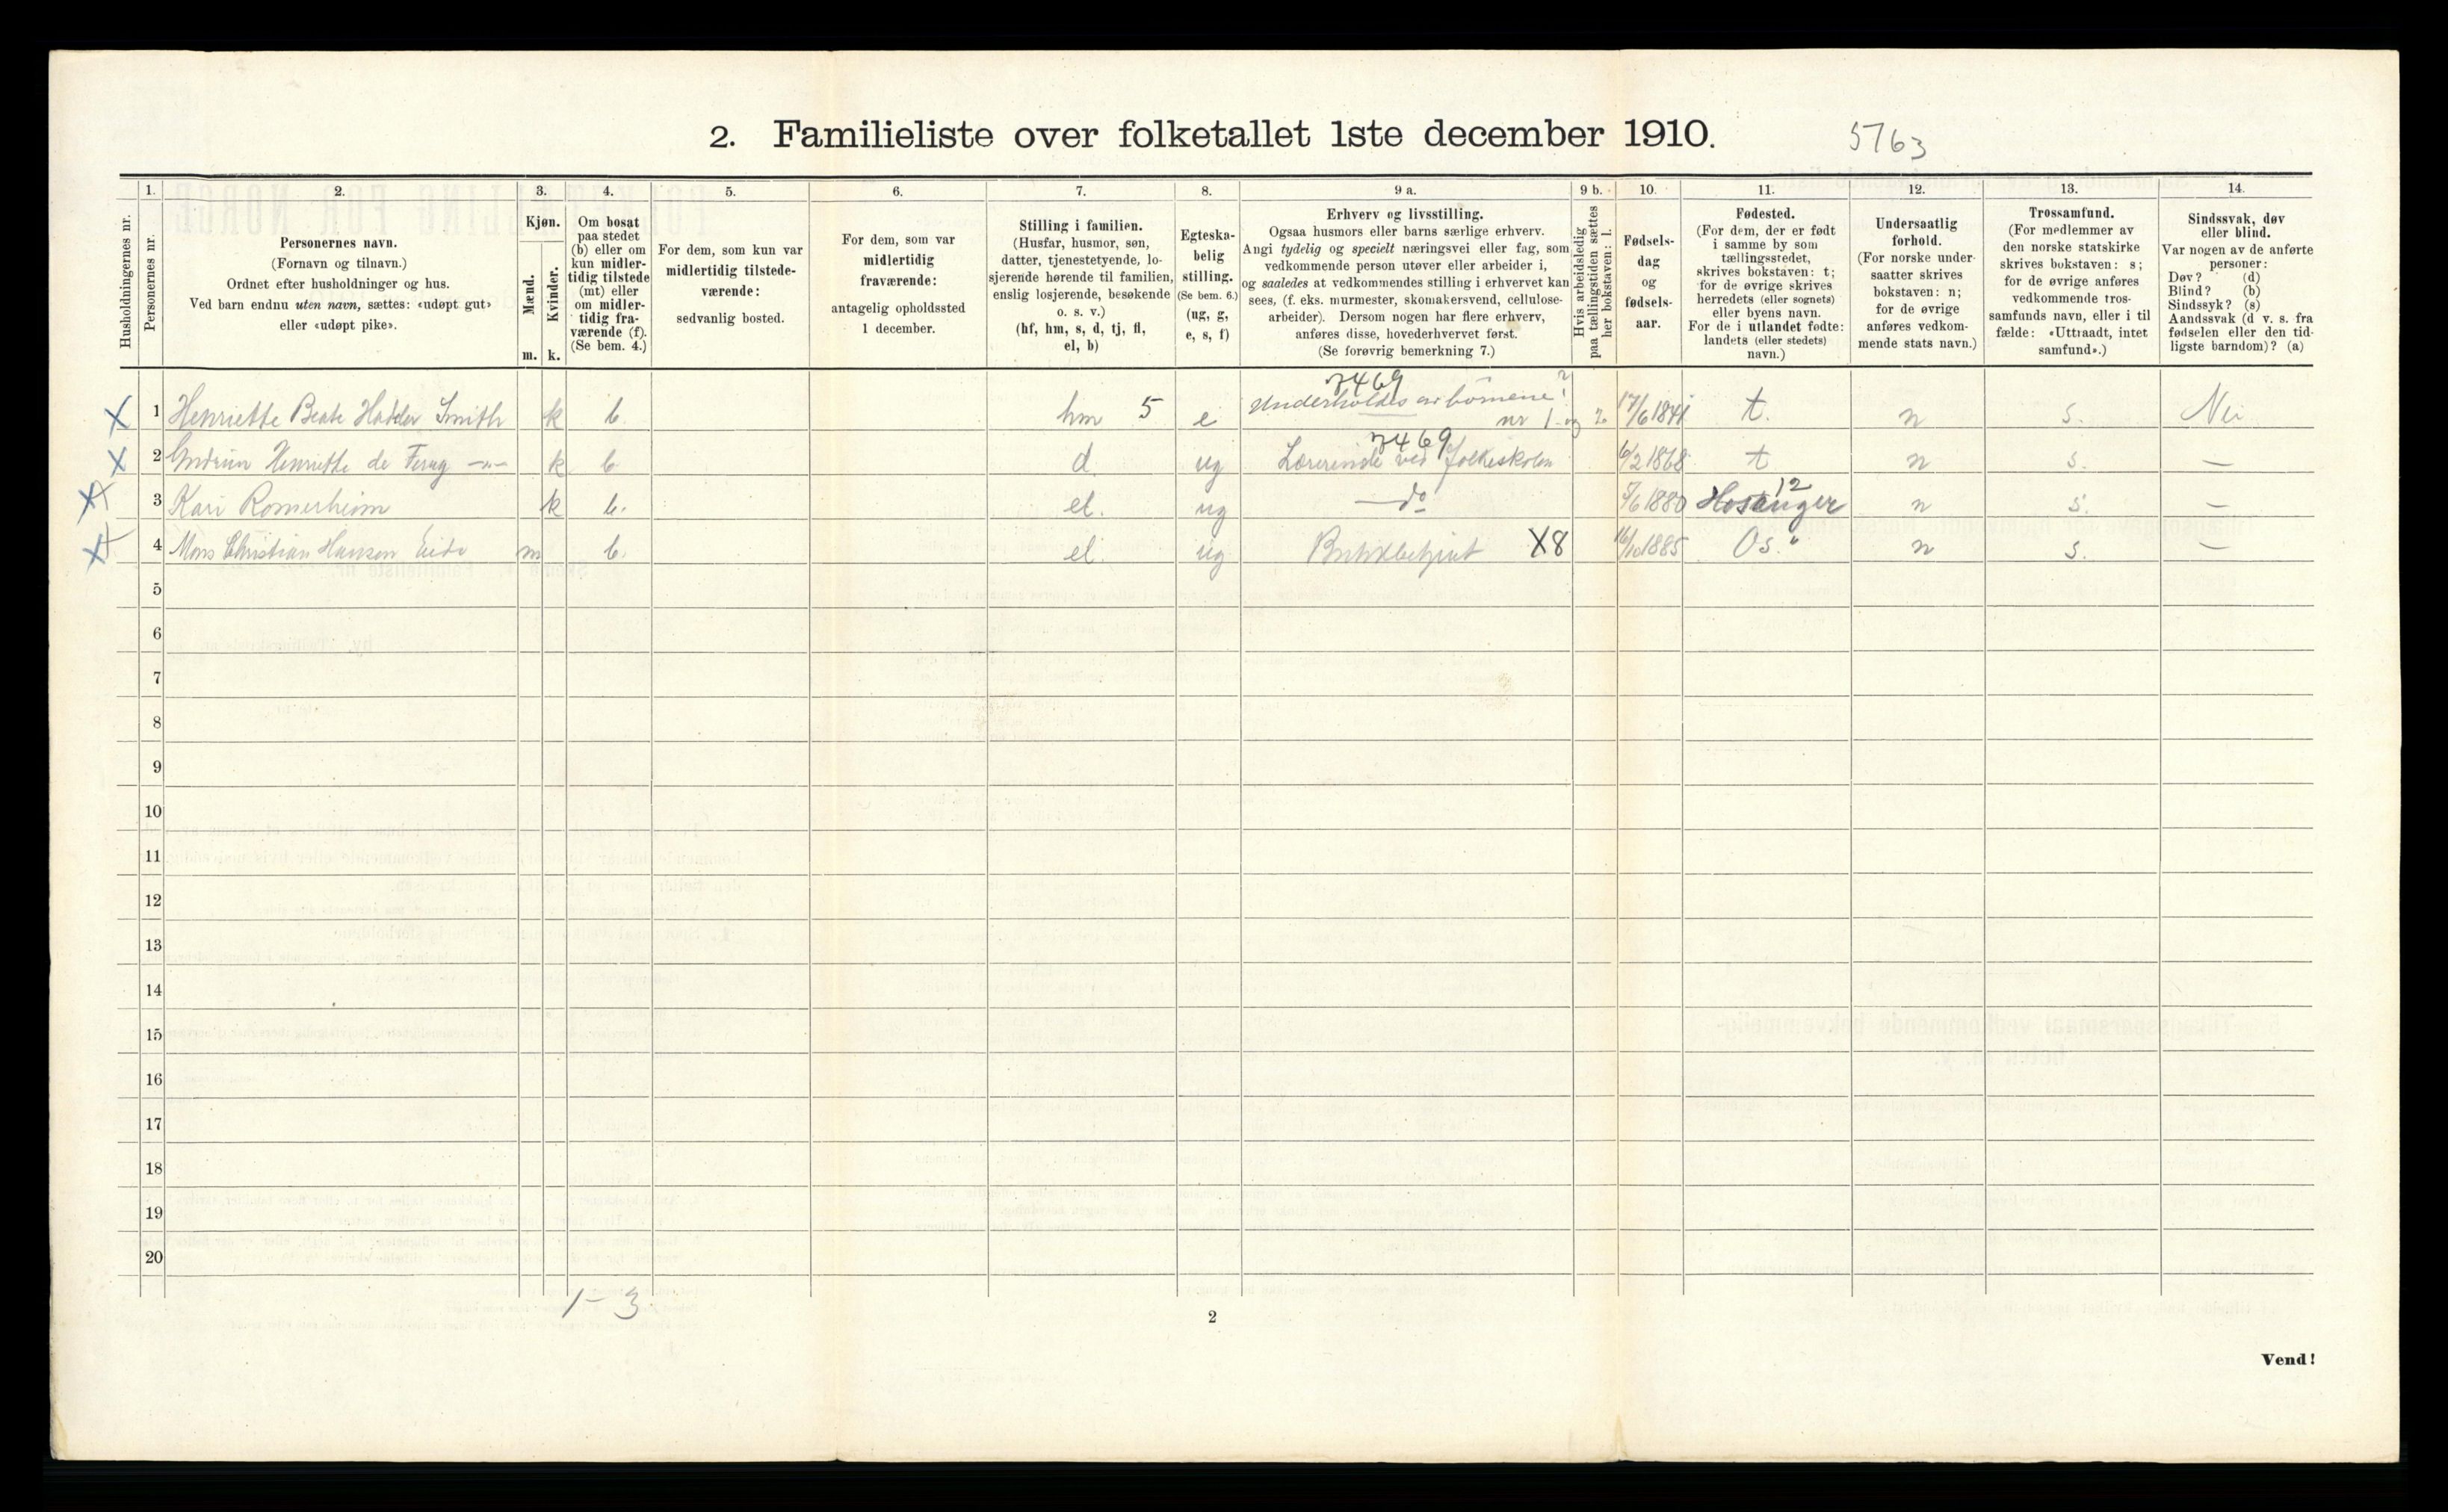 2. Familieliste over folketallet 1ste december 1910.
5763
Husholdningernes nr.
1.
Personernes nr.
2.
Personernes navn.
(Fornavn og tilnavn.)
Ordnet efter husholdninger og hus.
Ved barn endnu uten navn, sættes: «udøpt gut»
eller «udøpt pike».
3.
Kjøn.
Mænd.
Kvinder.
m. k.
4.
Om bosat
paa stedet
(b) eller om
kun midler-
tidig tilstede
(mt) eller
om midler-
tidig fra-
værende (f).
(Se bem. 4.)
5.
For dem, som kun var
midlertidig tilstede-
værende:
sedvanlig bosted.
6.
For dem, som var
midlertidig
fraværende:
antagelig opholdssted
1 december.
7.
Stilling i familien.
(Husfar, husmor, søn,
datter, tjenestetyende, lo-
sjerende hørende til familien,
enslig losjerende, besøkende
o. s. v.)
(hf, hm, s, d, tj, fl,
el, b)
8.
Egteska-
belig
stilling.
(Se bem. 6.)
(ug, g,
e, s, f)
9 a.
Erhverv og livsstilling.
Ogsaa husmors eller barns særlige erhverv.
Angi tydelig og specielt næringsvei eller fag, som
vedkommende person utøver eller arbeider i,
og saaledes at vedkommendes stilling i erhvervet kan
sees, (f. eks. murmester, skomakersvend, cellulose-
arbeider). Dersom nogen har flere erhverv,
anføres disse, hovederhvervet først.
(Se forøvrig bemerkning 7.)
9 b.
Hvis arbeidsledig
paa tællingstiden sættes
her bokstaven: l.
10.
Fødsels-
dag
og
fødsels-
aar.
11.
Fødested.
(For dem, der er født
i samme by som
tællingsstedet,
skrives bokstaven: t;
for de øvrige skrives
herredets (eller sognets)
eller byens navn.
For de i utlandet fødte:
landets (eller stedets)
navn.)
12.
Undersaatlig
forhold.
(For norske under-
saatter skrives
bokstaven: n;
for de øvrige
anføres vedkom-
mende stats navn.)
13.
Trossamfund.
(For medlemmer av
den norske statskirke
skrives bokstaven: s;
for de øvrige anføres
vedkommende tros-
samfunds navn, eller i til
fælde: «Uttraadt, intet
samfund».)
14.
Sindssvak, døv
eller blind.
Var nogen av de anførte
personer:
Døv? (d)
Blind? (b)
Sindssyk? (s)
Aandssvak (d v. s. fra
fødselen eller den tid-
ligste barndom)? (a)
7469
X 1 Henriette Beate Smith k b. hm 5 e Underholdes av børnene? nr 1 og 2 17/6 1841 t. n s. Nei
7469
X 2 Henriette de k b. d. ug Lærerinde ved Folkeskolen 6/2 1868 t n s. —
12
X 3 Kari Romerheim k b. el. ug — do 1880 Hosanger n s. —
X 4 Mons Christian Hansen Eide m b. el. ug X8 1885 Os. " n s. —
5
6
7
8
9
10
11
12
13
14
15
16
17
18
19
20
1-3
2
Vend!